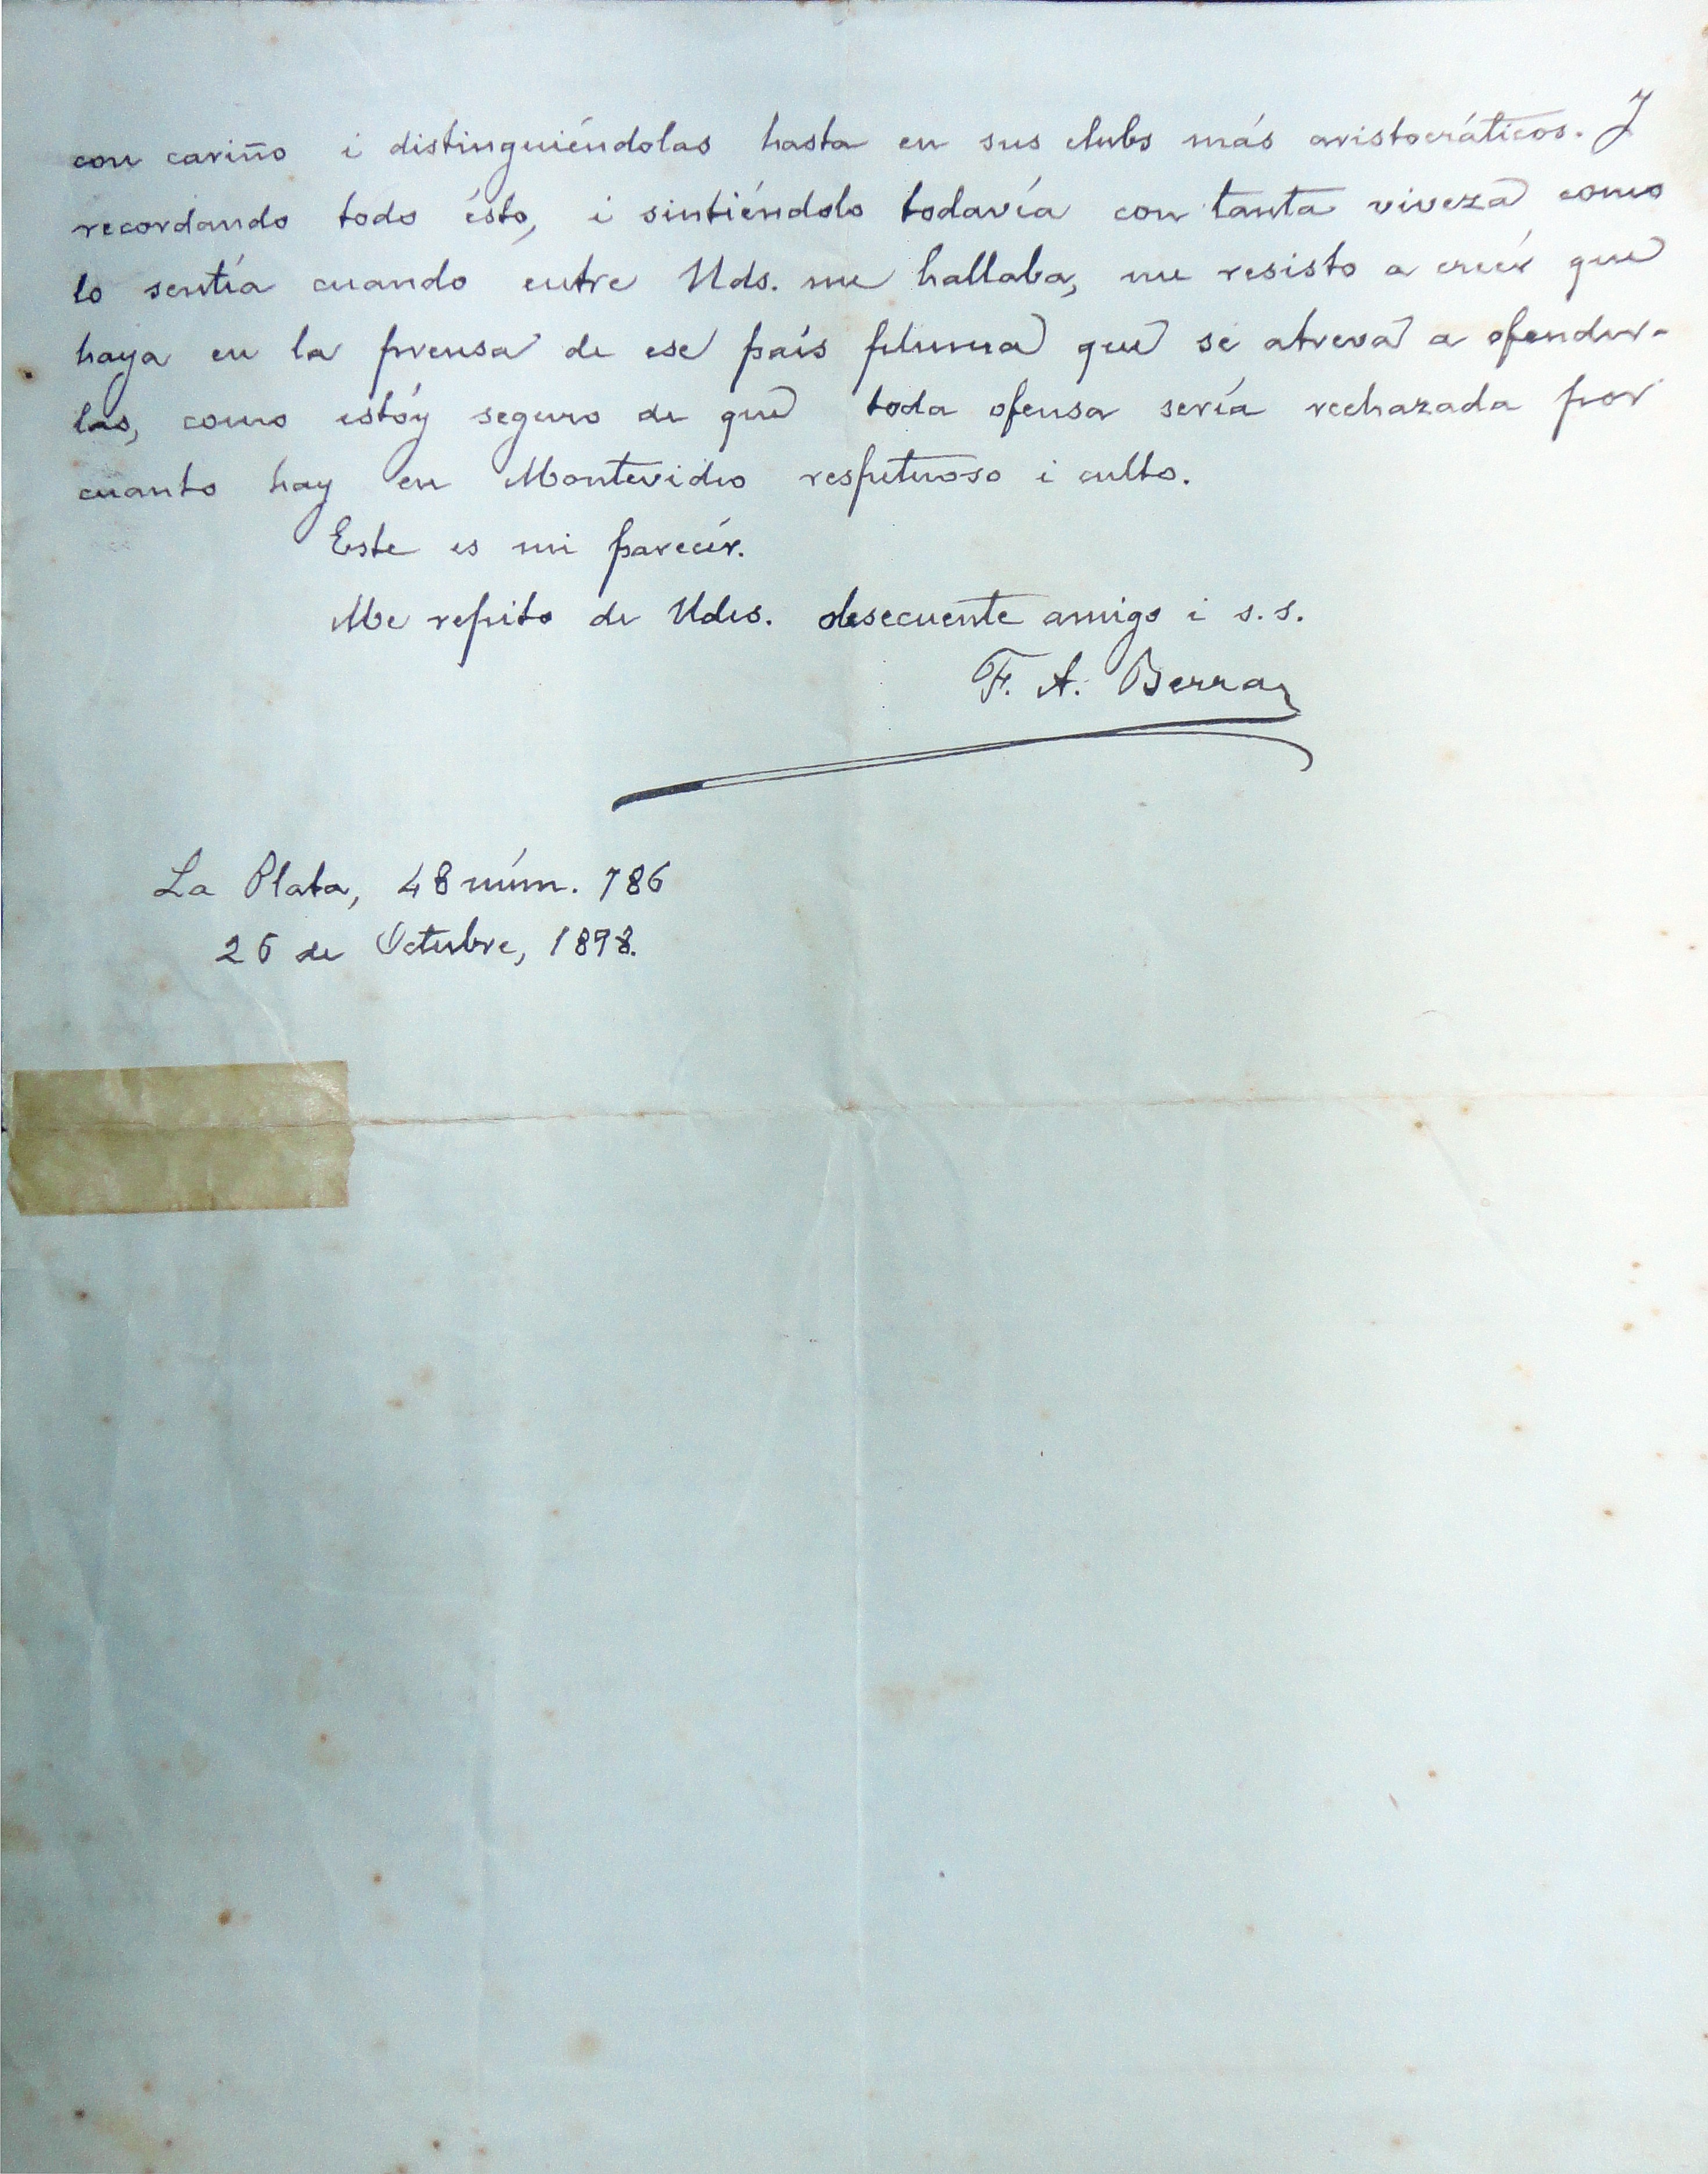 con cariño i distinguiéndolas hasta en sus clubs más aristocráticos. I
recordando todo ésto, i sintiéndolo todavía con tanta viveza como
lo sentía cuando entre Uds. me hallaba, me resisto a creér que
haya en la prensa de ese país pluma que se atreva a ofender-
las, como estóy seguro de que toda ofensa sería rechazada por
cuanto hay en Montevideo respetuoso i culto.
Este es mi parecér.
Me repito de Udes. obsecuente amigo i s. s.
F. A. Berra
La Plata, 48 núm. 786
26 de Octubre, 1898.